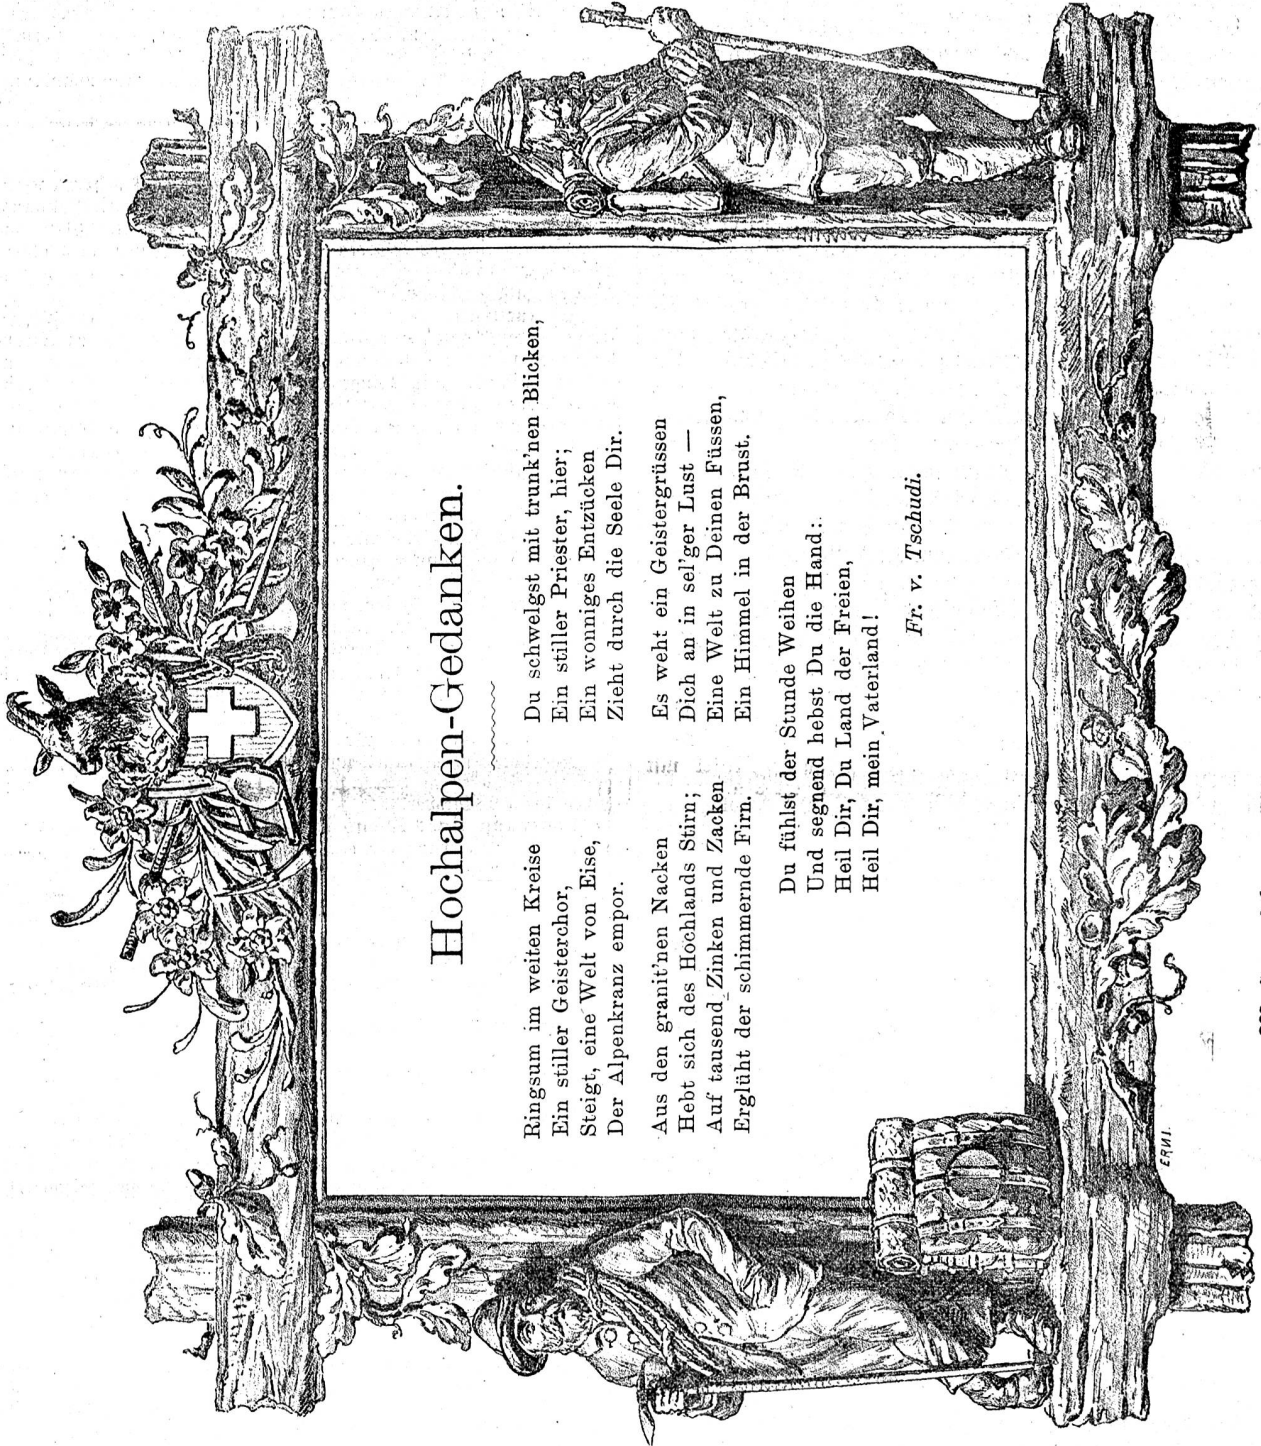 Hochalpen-Gedanken.
Ringsum im weiten Kreise
Ein stiller Geisterchor,
Steigt, eine Welt von Eise,
Der Alpenkranz empor.
Aus den granit'nen Nacken
Hebt sich des Hochlands Stirn;
Auf tausend Zinken und Zacken
Erglüht der schimmernde Firn.
Du schwelgst mit trunk'nen Blicken,
Ein stiller Priester, hier;
Ein wonniges Entzücken
Zieht durch die Seele Dir.
Es weht ein Geistergrüssen
Dich an in sel'ger Lust —
Eine Welt zu Deinen Füssen,
Ein Himmel in der Brust.
Du fühlst der Stunde Weihen
Und segnend hebst Du die Hand:
Heil Dir, Du Land der Freien,
Heil Dir, mein Vaterland!
Fr. v. Tschudi.
ERNI.